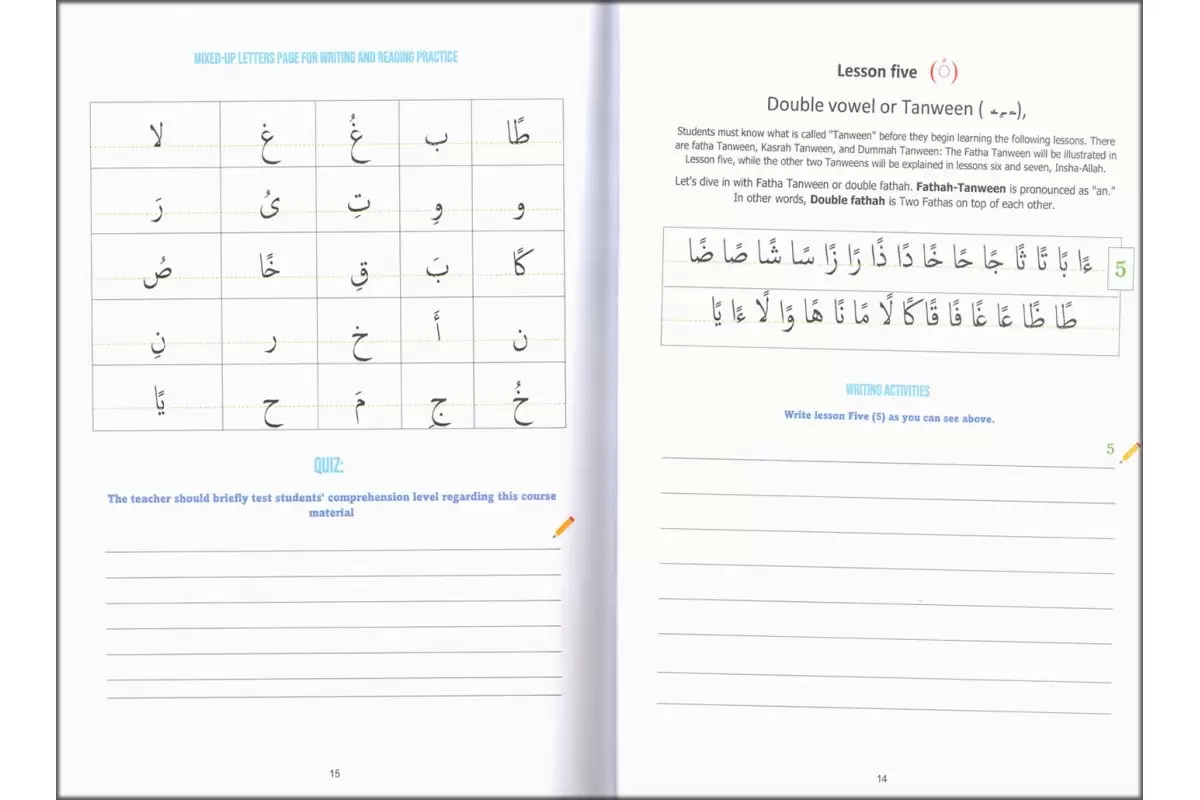 Lesson five (ــًـ)
Double vowel or Tanween ( ـًـٍـٌ ),
Students must know what is called "Tanween" before they begin learning the following lessons. There
are fatha Tanween, Kasrah Tanween, and Dummah Tanween: The Fatha Tanween will be illustrated in
Lesson five, while the other two Tanweens will be explained in lessons six and seven, Insha-Allah.
Let's dive in with Fatha Tanween or double fathah. Fathah-Tanween is pronounced as "an."
In other words, Double fathah is Two Fathas on top of each other.
ءًا بًا تًا ثًا جًا حًا خًا دًا ذًا رًا زًا سًا شًا صًا ضًا
5
طًا ظًا عًا غًا فًا قًا كًا لًا مًا نًا هًا وًا لًا ءًا يًا
WRITING ACTIVITIES
Write lesson Five (5) as you can see above.
5
14
MIXED-UP LETTERS PAGE FOR WRITING AND READING PRACTICE
طًا ب غُ غ لا
و وِ تِ ىُ رَ
كًا بَ قِ خًا صُ
ن أَ خ ر نِ
خُ جِ مَ ح يًا
QUIZ:
The teacher should briefly test students' comprehension level regarding this course
material
15